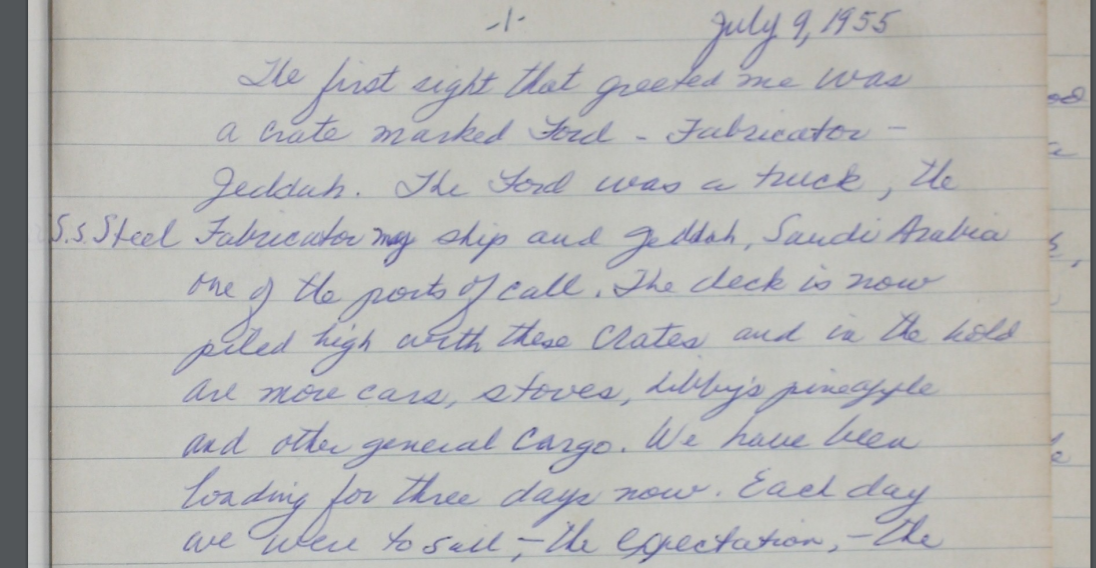 -1- July 9, 1955
The first sight that greeted me was
a crate marked Ford - Fabricator -
Jeddah. The Ford was a truck, the
S.S. Steel Fabricator my ship and Jeddah, Saudi Arabia
one of the ports of call. The deck is now
piled high with these crates and in the hold
are more cars, stoves, Libby's pineapple
and other general cargo. We have been
loading for three days now. Each day
we were to sail, - the expectation, - the